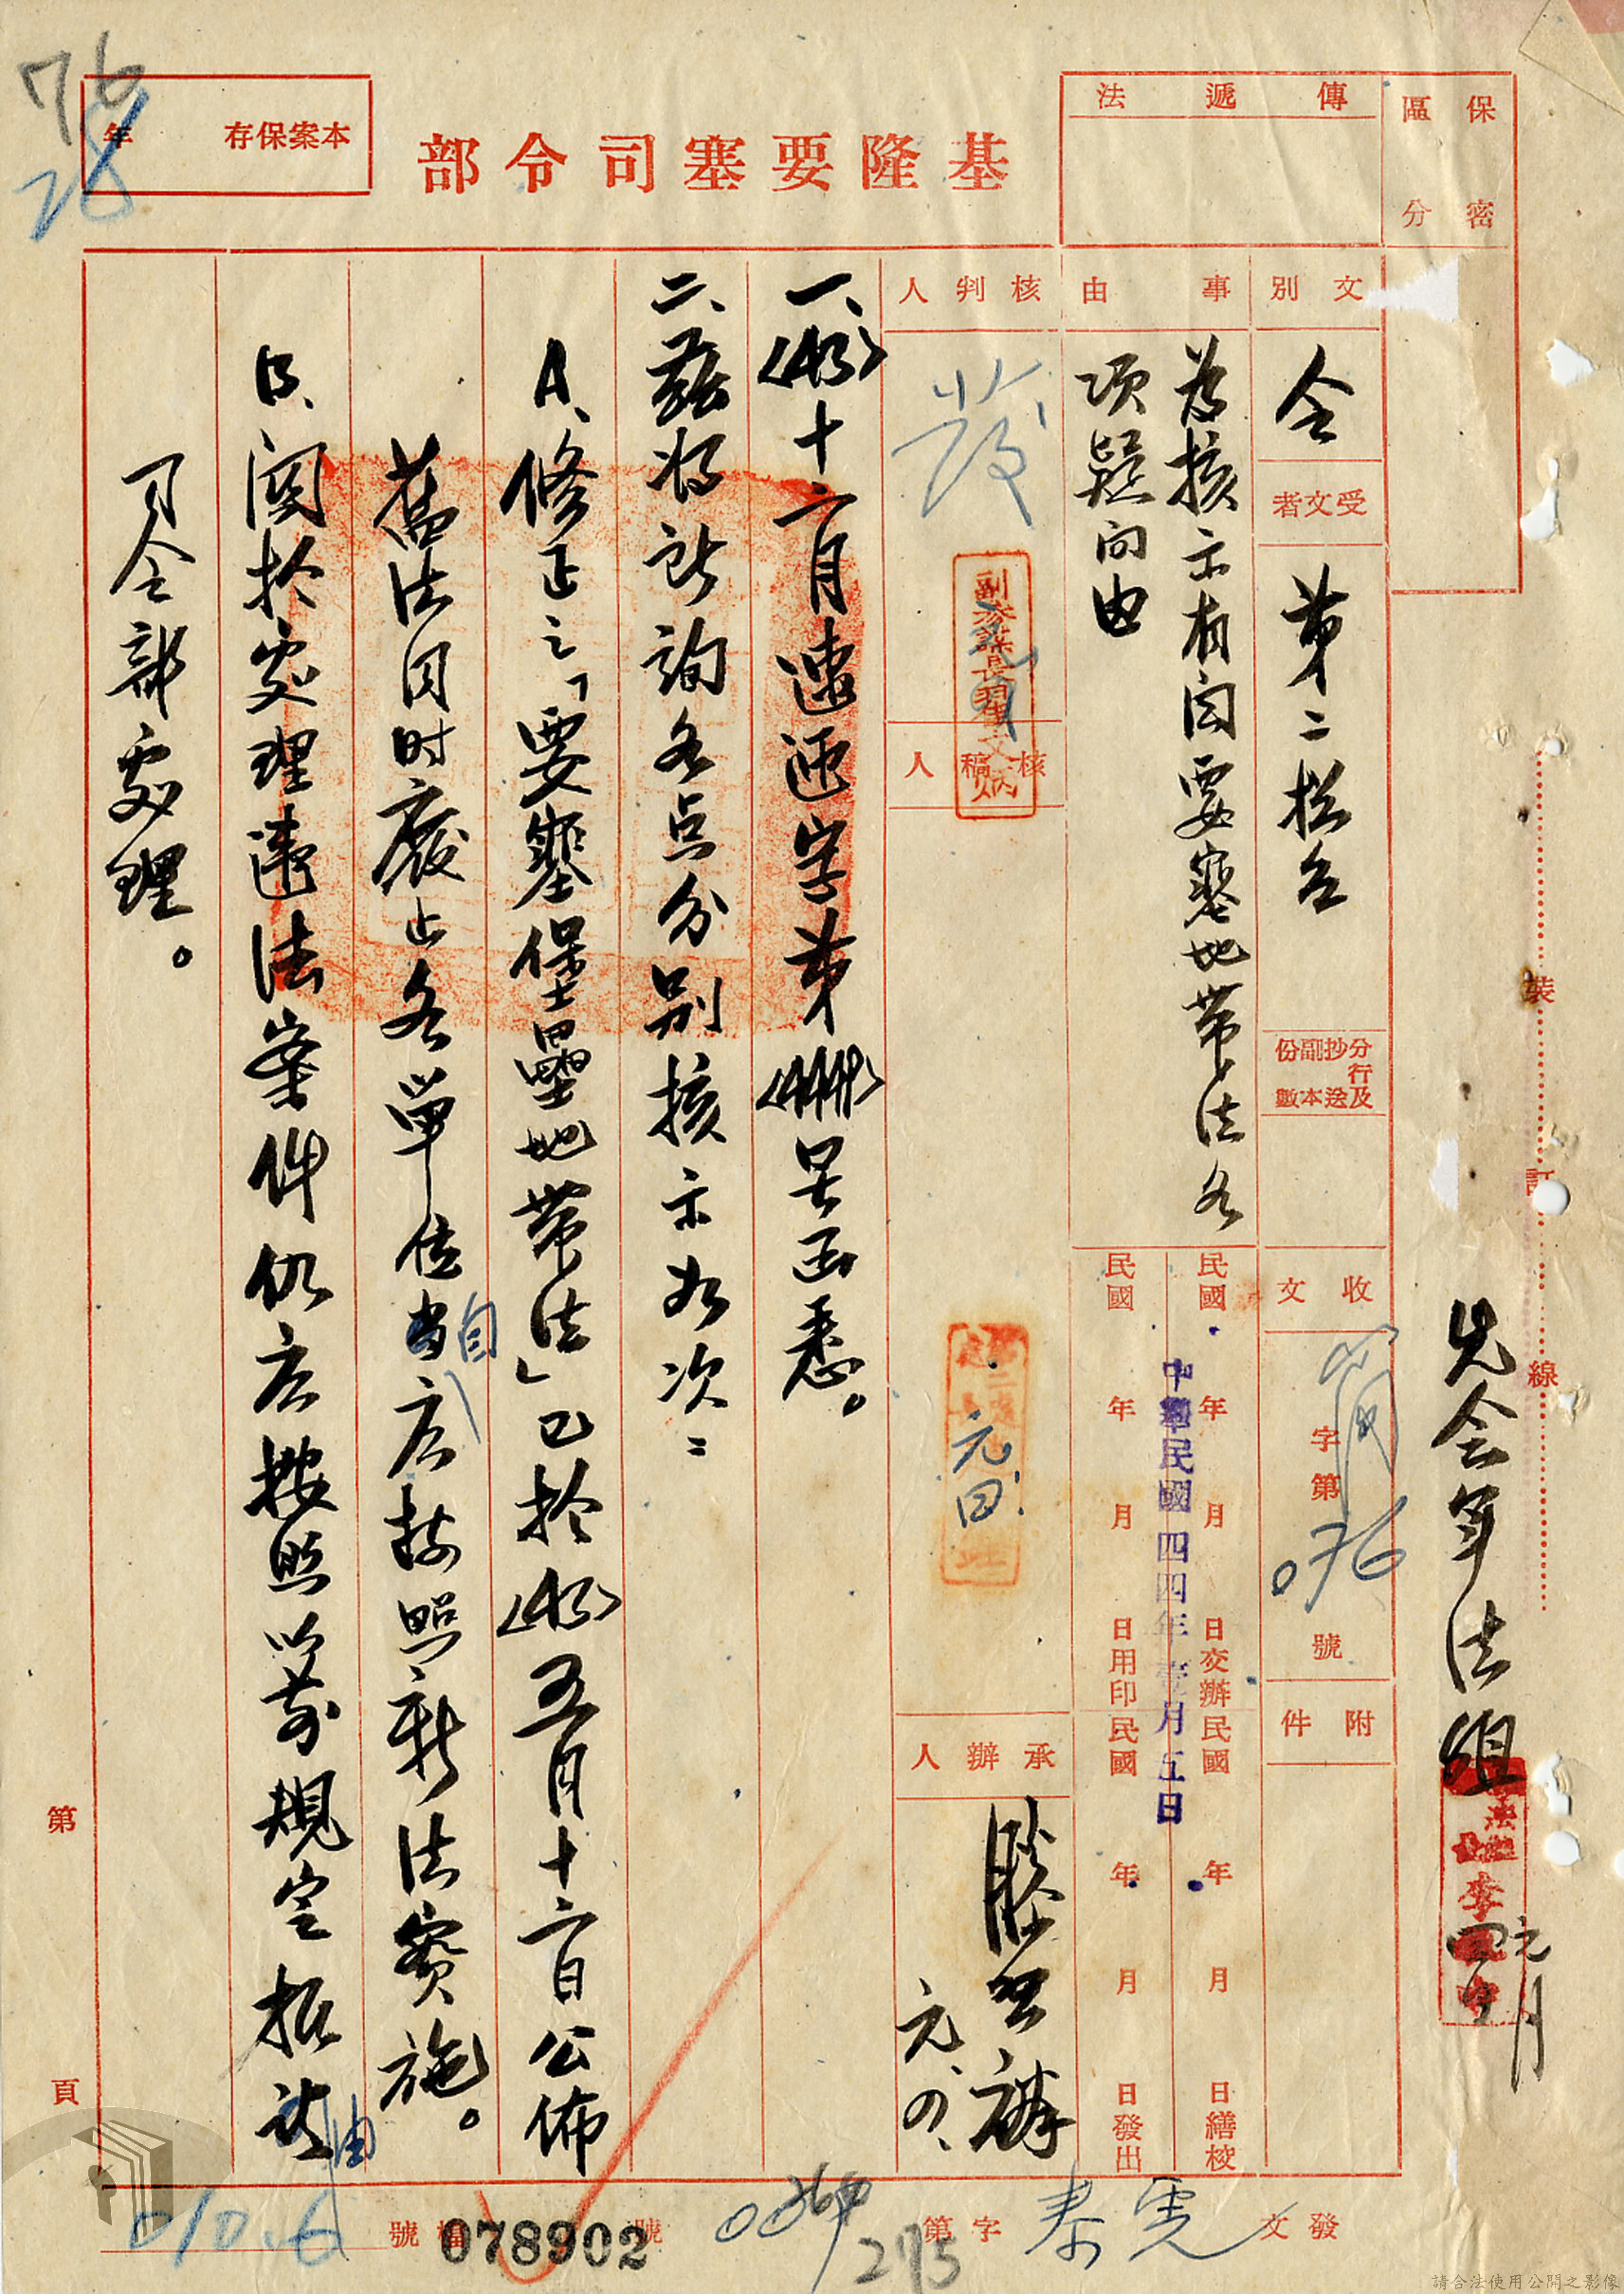 保密
區分
傳遞法
基隆要塞司令部
本案保存 年
76
28
文別
令
受文者
第二總台
分行及抄送副本份數
收文
字第
076
號
附件
事由
為核示有関要塞地帶法各
項疑问由
民國 年 月 日交辦
民國 年 月 日繕校
中華民國四四年壹月五日
民國 年 月 日用印
民國 年 月 日發出
核判人
發
副參謀長
核稿人
元
承辦人
元、
先会军法組
元月
一、〈43〉十二月 字第 号函悉。
二、茲將所詢各点分别核示如次：
A、修正之「要塞堡壘地帶法」已於〈43〉五月十二日公佈
舊法同时廢止各單位自应按照新法實施。
B、関於處理違法案件仍应按照以前規定振送由
司令部處理。
裝
訂
線
第
頁
發文
字第
275
號
078902
檔號
010.6
請合法使用公開之影像